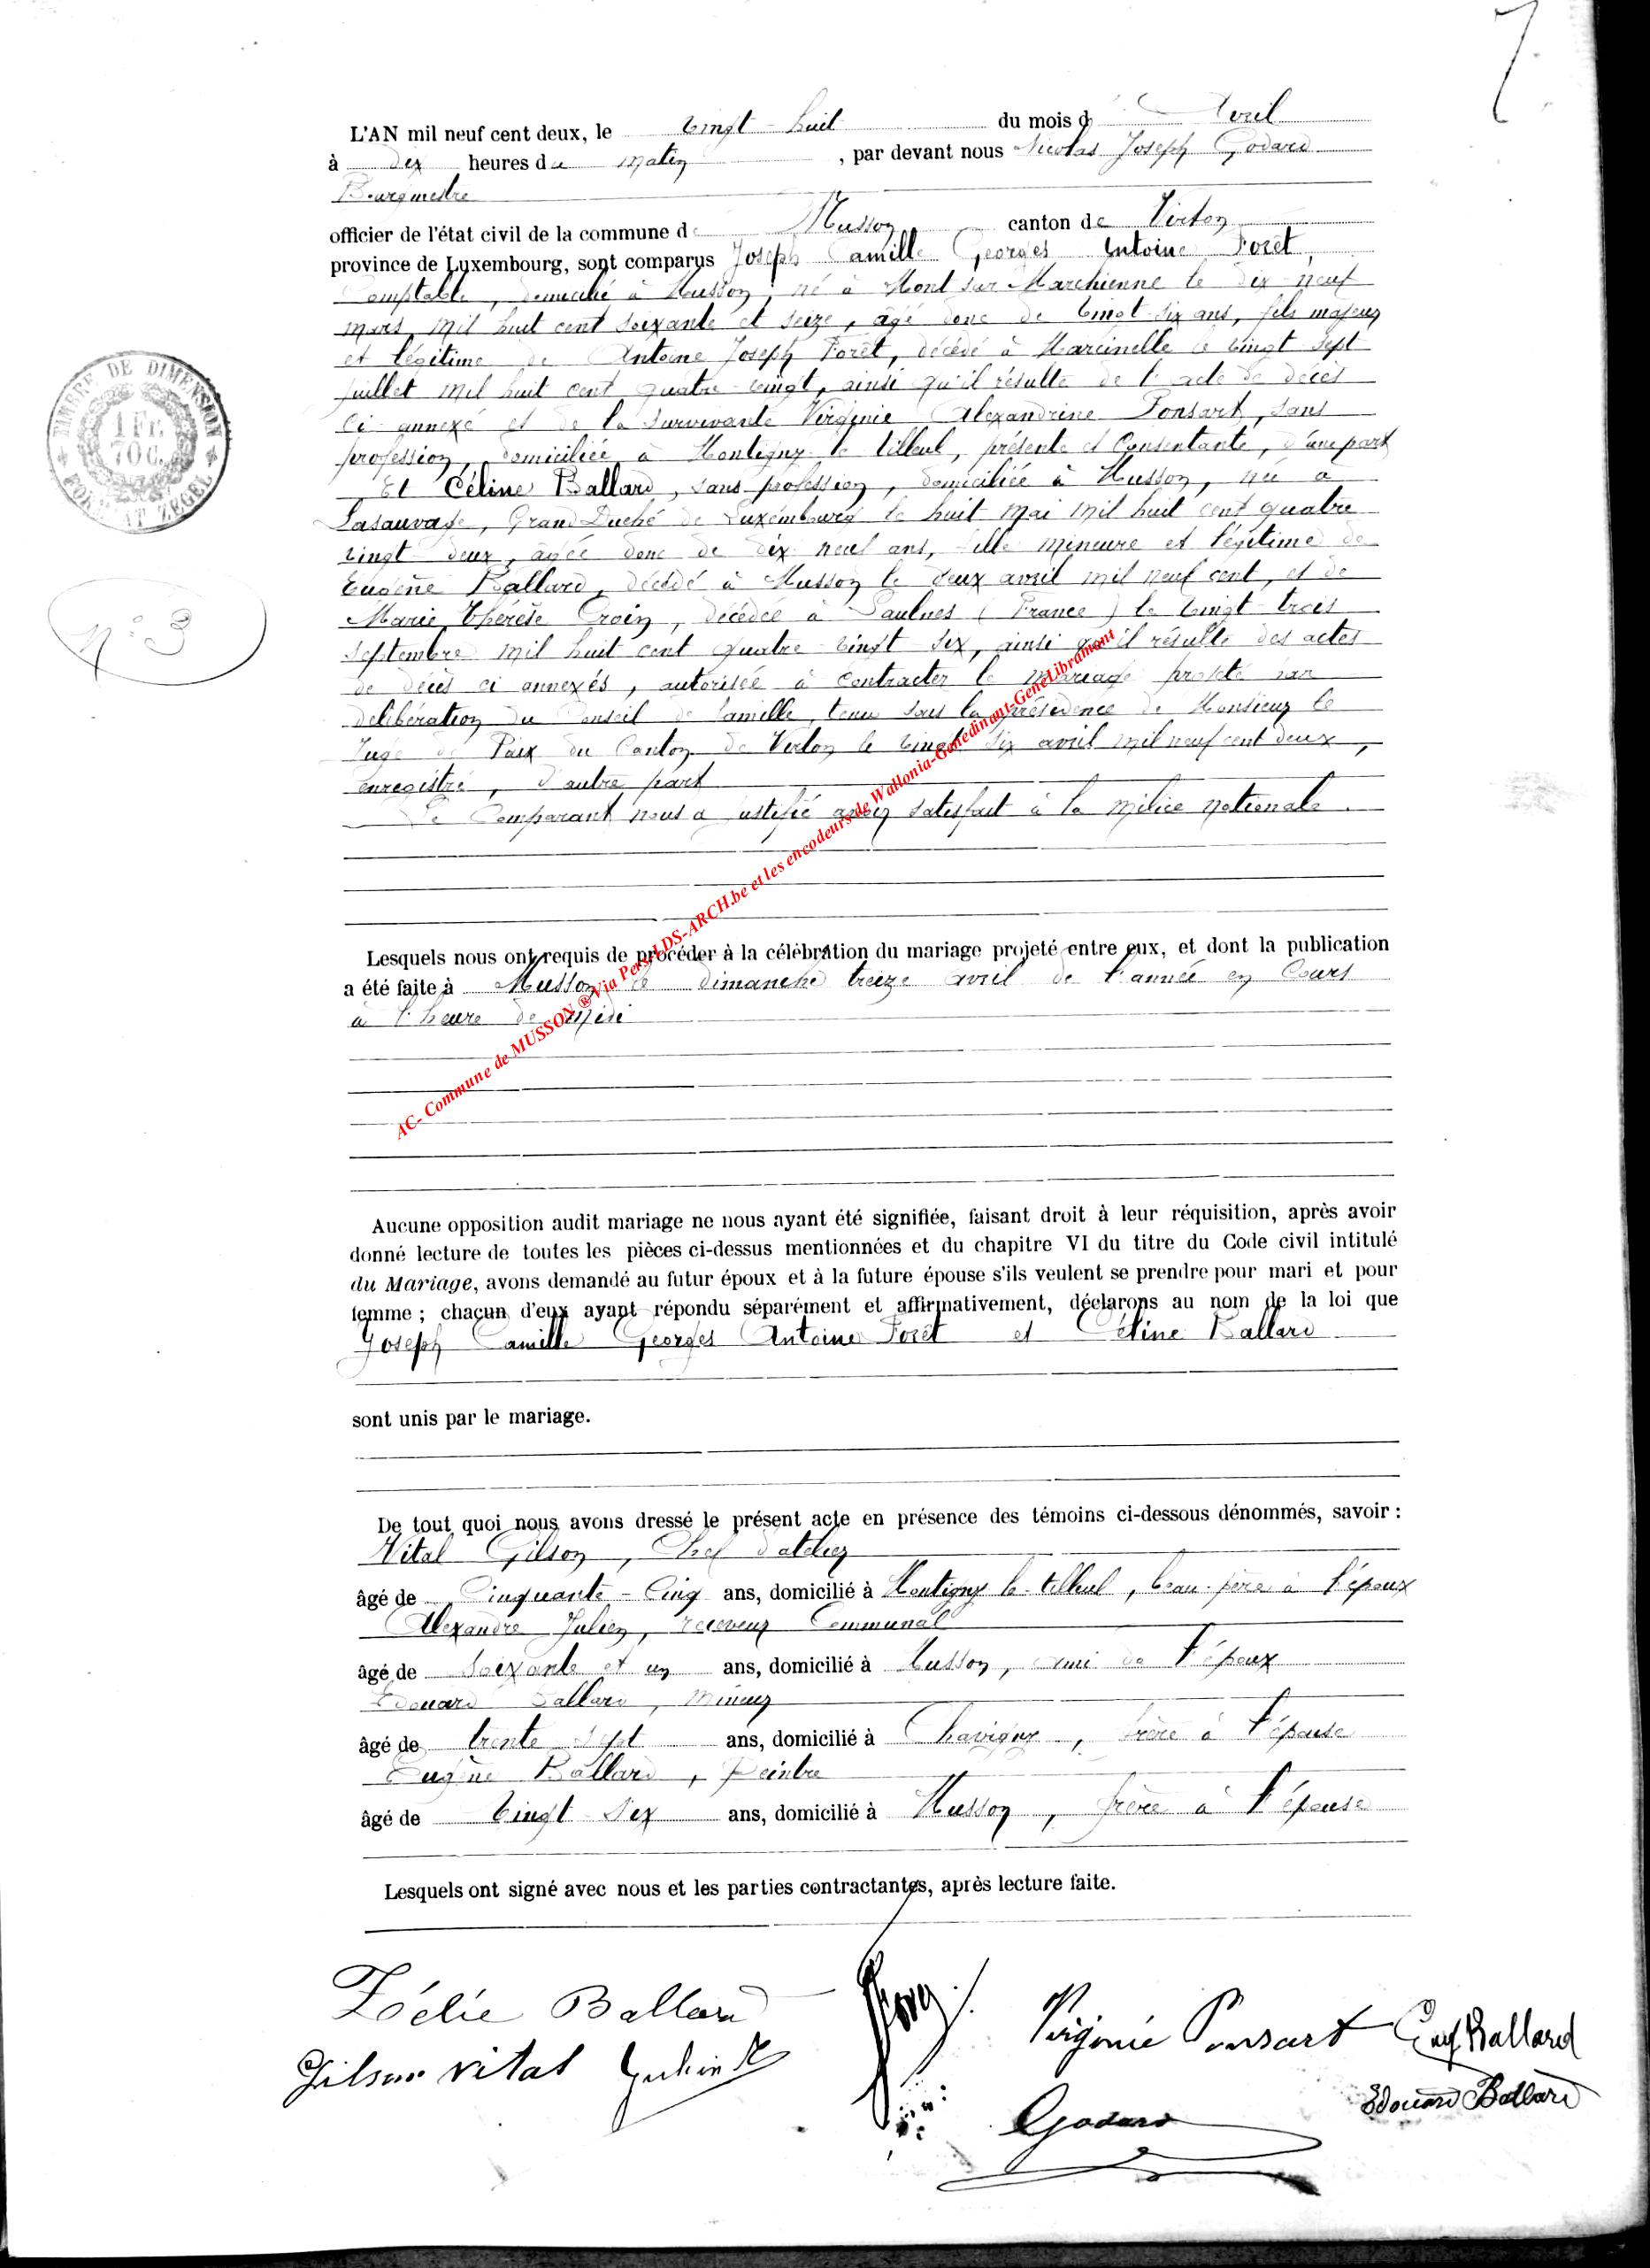 7
L'AN mil neuf cent deux, le vingt-huit du mois d' Avril
à dix heures du matin, par devant nous Nicolas Joseph Godard
Bourgmestre
officier de l'état civil de la commune de Musson canton de Virton
province de Luxembourg, sont comparus Joseph Camille Georges Antoine Forêt,
Comptable, domicilié à Musson, né à Mont sur Marchienne le dix-neuf
mars mil huit cent soixante et seize, âgé donc de vingt-six ans, fils majeur
et légitime de Antoine Joseph Forêt, décédé à Marcinelle le vingt sept
juillet mil huit cent quatre-vingt, ainsi qu'il résulte de l'acte de décès
ci-annexé et de la survivante Virginie Alexandrine Ponsart, sans
profession, domiciliée à Montigny-le-tilleul, présente et Consentante, d'une part
Et Céline Ballard, sans profession, domiciliée à Musson, née à
Lasauvage, Grand Duché de Luxembourg le huit mai mil huit cent quatre
vingt deux, âgée donc de dix neuf ans, fille mineure et légitime de
Eugène Ballard, décédé à Musson le deux avril mil neuf cent, et de
Marie Thérèse Croin, décédée à Saulnes (France) le vingt-trois
septembre mil huit cent quatre vingt six, ainsi qu'il résulte des actes
de décès ci annexés, autorisée à contracter le mariage projeté par
délibération du Conseil de famille, tenu sous la présidence de Monsieur le
Juge de Paix du Canton de Virton le vingt six avril mil neuf cent deux,
enregistré, d'autre part
Le Comparant nous a justifié avoir satisfait à la milice nationale.
Lesquels nous ont requis de procéder à la célébration du mariage projeté entre eux, et dont la publication
a été faite à Musson le dimanche treize avril de l'année en Cours
à l'heure de midi
Aucune opposition audit mariage ne nous ayant été signifiée, faisant droit à leur réquisition, après avoir
donné lecture de toutes les pièces ci-dessus mentionnées et du chapitre VI du titre du Code civil intitulé
du Mariage, avons demandé au futur époux et à la future épouse s'ils veulent se prendre pour mari et pour
femme ; chacun d'eux ayant répondu séparément et affirmativement, déclarons au nom de la loi que
Joseph Camille Georges Antoine Forêt et Céline Ballard
sont unis par le mariage.
De tout quoi nous avons dressé le présent acte en présence des témoins ci-dessous dénommés, savoir :
Vital Gilson, Chef d'atelier
âgé de Cinquante-Cinq ans, domicilié à Montigny-le-tilleul, beau-père à l'époux
Alexandre Julien, receveur Communal
âgé de Soixante et un ans, domicilié à Musson, ami de l'époux
Edouard Ballard, mineur
âgé de trente sept ans, domicilié à Chavigny, frère à l'épouse
Eugène Ballard, Peintre
âgé de vingt six ans, domicilié à Musson, frère à l'épouse
Lesquels ont signé avec nous et les parties contractantes, après lecture faite.
Zélie Ballard
Virginie Ponsart
Eug Ballard
Gilson Vital
Julien
Edouard Ballard
Godard
TIMBRE DE DIMENSION
1 FR.
70 C.
FORMAAT ZEGEL
N° 3
AC- Commune de MUSSON ® Via Pers LDS-ARCH.be et les encodeurs de Wallonia-Genedinant-GeneLibramont